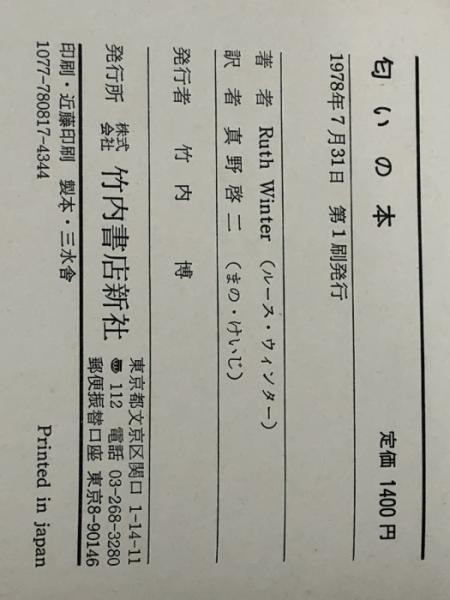 匂いの本
定価 1400円
1978年7月31日 第1刷発行
著者 Ruth Winter (ルース・ウィンター)
訳者 真野啓二 (まの・けいじ)
発行者 竹内 博
発行所 株式会社 竹内書店新社
東京都文京区関口 1-14-11
〠 112 電話 03-268-3280
郵便振替口座 東京8-90146
印刷・近藤印刷 製本・三水舎
1077-780817-4344
Printed in japan